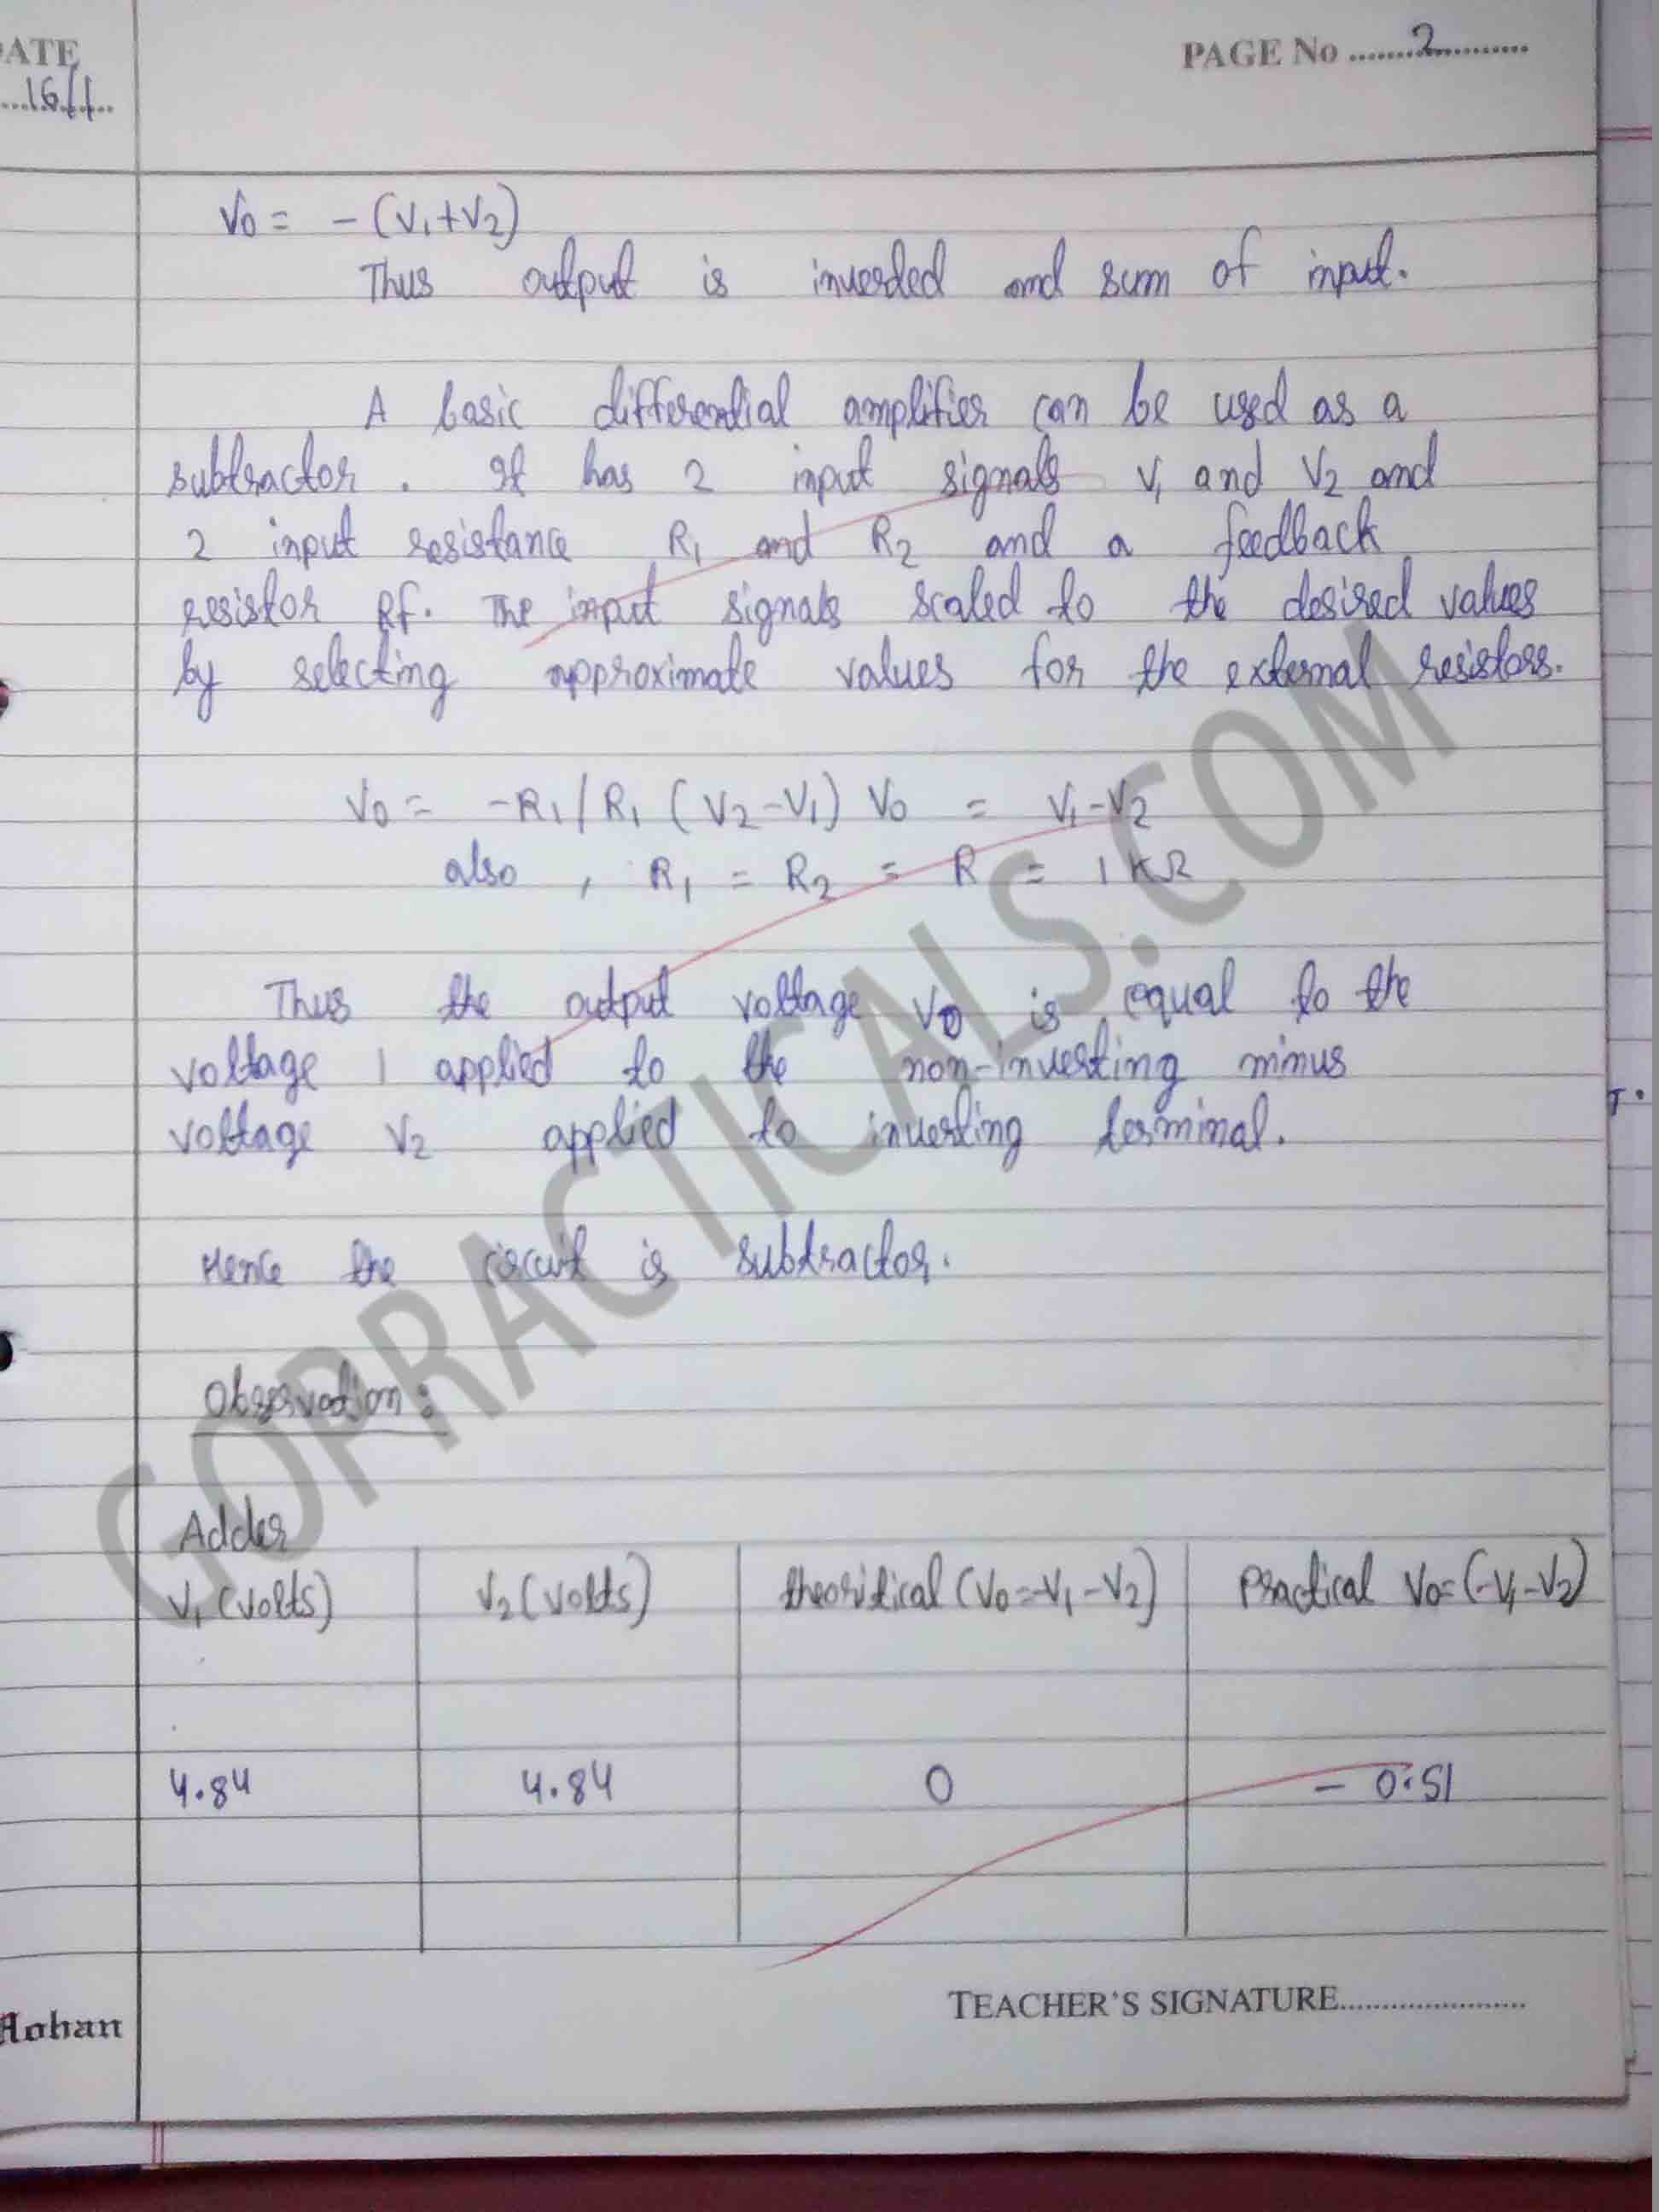 DATE
16/1
PAGE No 2
V0 = - (V1+V2)
Thus output is inverted and sum of input.
A basic differential amplifier can be used as a
subtractor. It has 2 input signals V1 and V2 and
2 input resistance R1 and R2 and a feedback
resistor Rf. The input signals scaled to the desired values
by selecting approximate values for the external resistors.
V0 = -R1/R1 (V2-V1) V0 = V1-V2
also, R1 = R2 = R = 1KΩ
Thus the output voltage V0 is equal to the
voltage 1 applied to the non-inverting minus
voltage V2 applied to inverting terminal.
Hence the circuit is subtractor.
Observation:
Adder
V1 (volts) V2 (volts) theoritical (V0=-V1-V2) Practical V0=(-V1-V2)
4.84 4.84 0 - 0.51
TEACHER'S SIGNATURE
Mohan
GOPRACTICALS.COM